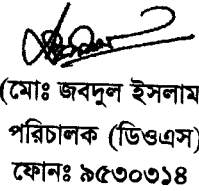 (মোঃ জবদুল ইসলাম
পরিচালক (ডিওএস)
ফোনঃ ৯৫৩০৩১৪